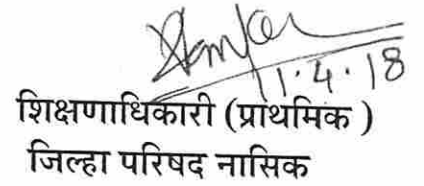 11.4.18
शिक्षणाधिकारी (प्राथमिक )
जिल्हा परिषद नासिक